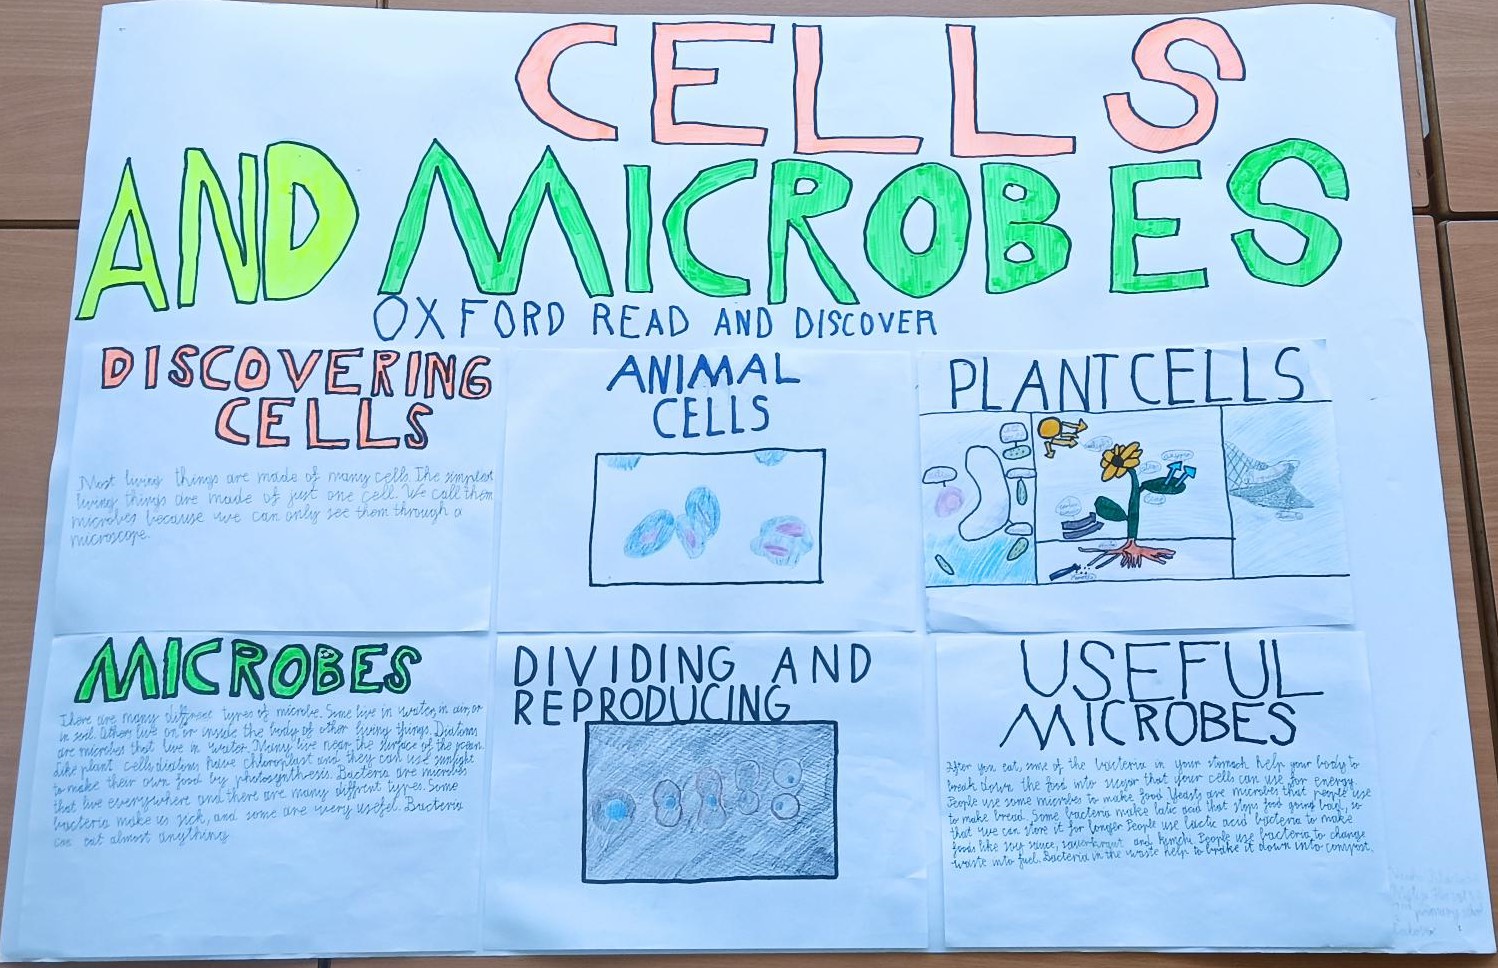 CELLS
AND MICROBES
OXFORD READ AND DISCOVER
DISCOVERING
CELLS
Most living things are made of many cells. The simplest
living things are made of just one cell. We call them
microbes because we can only see them through a
microscope.
ANIMAL
CELLS
PLANT CELLS
MICROBES
There are many different types of microbe. Some live in water, in air, or
in soil. Others live on or inside the body of other living things. Diatoms
are microbes that live in water. Many live near the surface of the ocean.
Like plant cells diatoms have chloroplast and they can use sunlight
to make their own food by photosynthesis. Bacteria are microbes
that live everywhere and there are many diffrent types. Some
bacteria make us sick, and some are very useful. Bacteria
can eat almost anything
DIVIDING AND
REPRODUCING
USEFUL
MICROBES
After you eat, some of the bacteria in your stomach help your body to
break down the food into sugar that your cells can use for energy.
People use some microbes to make food. Yeasts are microbes that people use
to make bread. Some bacteria make latic acid that stops food going bad, so
that we can store it for longer. People use lactic acid bacteria to make
foods like soy sauce, sauerkraut and kimchi. People use bacteria to change
waste into fuel. Bacteria in the waste help to brake it down into compost.
primary school